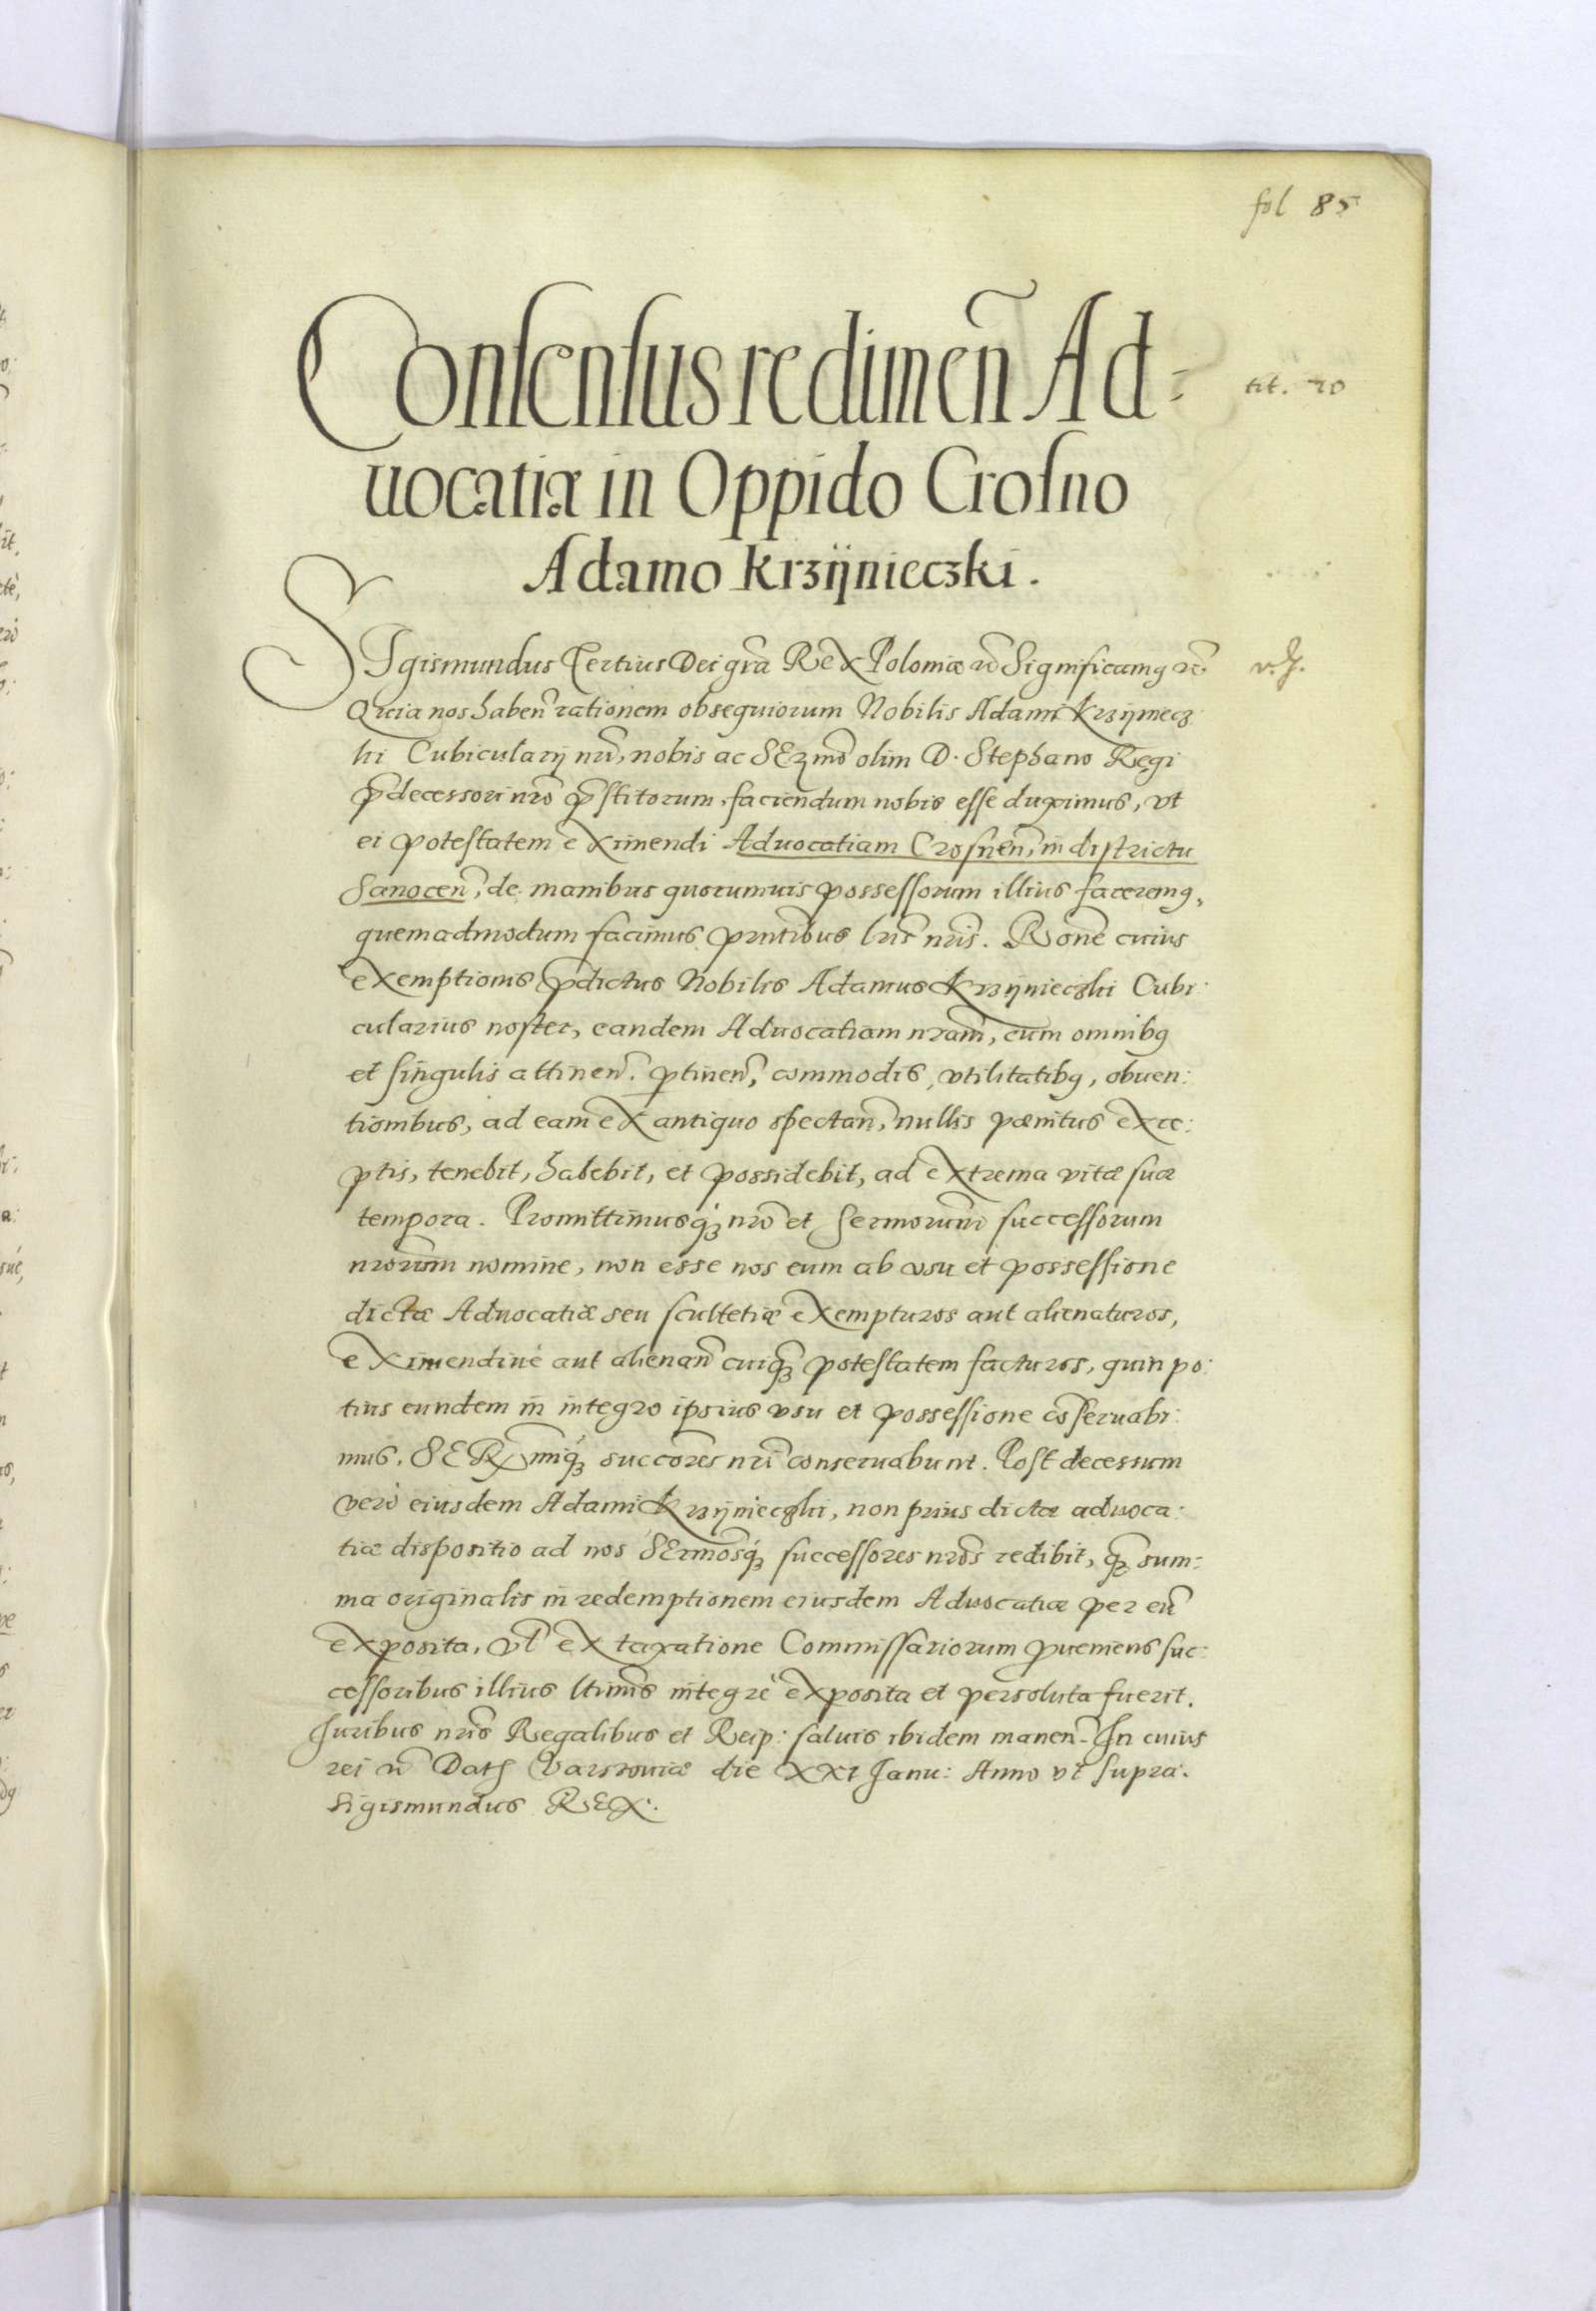 fol 85
Consensus redimen̄ Ad=
tit. 70
uocatiæ in Oppido Crosno
Adamo Krzÿnieczki.
SIgismundus Tertius Dei gr̃a Rex Poloniæ &c̃ Significamꝰ &c̃.
Quia nos haben̄ rationem obsequiorum Nobilis Adami Krzÿniecz
ki Cubicularÿ nr̃i, nobis ac SErmõ olim D. Stephano Regi
p̃decessori nr̃o p̃stitorum, faciendum nobis esse duximus, vt
ei potestatem eximendi Aduocatiam Crosnen̄, in districtu
Sanocen̄, de manibus quorumuis possessorum illius faceremꝰ,
quemadmodum facimus pñtibus lr̃is nr̃is. R̃one cuius
exemptionis p̃dictus Nobilis Adamus Krzÿnieczki Cubi:
cularius noster, eandem Aduocatiam nr̃am, cum omnibꝰ
et singulis attinen̄. ꝑtinen̄, commodis, vtilitatibꝰ, obuen:
tionibus, ad eam ex antiquo spectan̄, nullis pænitus exce:
ptis, tenebit, habebit, et possidebit, ad extrema vitæ suæ
tempora. Promittimusqꝫ nr̃o et Sermorum̃ successorum
nr̃orum nomine, non esse nos eum ab vsu et possessione
dictæ Aduocatiæ seu scultetiæ exempturos aut alienaturos,
eximendiué aut alienan̄ cuiqꝫ potestatem facturos, quin po:
tius eundem in integro ipsius vsu et possessione cõseruabi:
mus, SERmiq́ꝫ succores̃ nr̃i conseruabunt. Post decessum
verò eiusdem Adami Krzÿnieczki, non prius dictæ aduoca:
tiæ dispositio ad nos SErmosq́ꝫ successores nr̃os redibit, qꝫ̃ sum:
ma originalis in redemptionem eiusdem Aduocatiæ per eũ
exposita, vl̃ ex taxatione Commissariorum ꝓueniens suc:
cessoribus illius ltimis̃ integrè exposita et persoluta fuerit.
Juribus nr̃is Regalibus et Reip: saluis ibidem manen̄. In cuius
rei &c̃ Datꝭ Varsouiæ die XXI Janu: Anno vt supra.
Sigismundus REX.